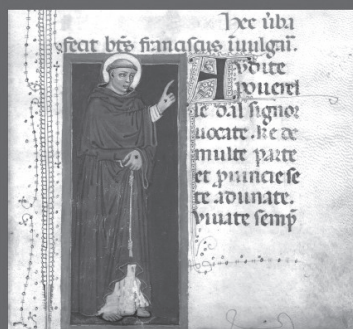 Hec v̄ba
fecit bt̄s franciscus ī uulgari.
Audite
pouerel
le d.al signor
uocate. ke de
multe parte
et prouincie se
te adunate.
Viuate semp̄